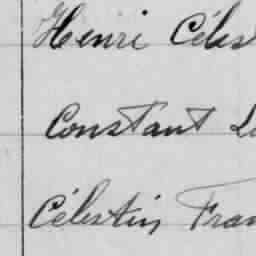 Henri Céles
Constant L
Célestin Fran